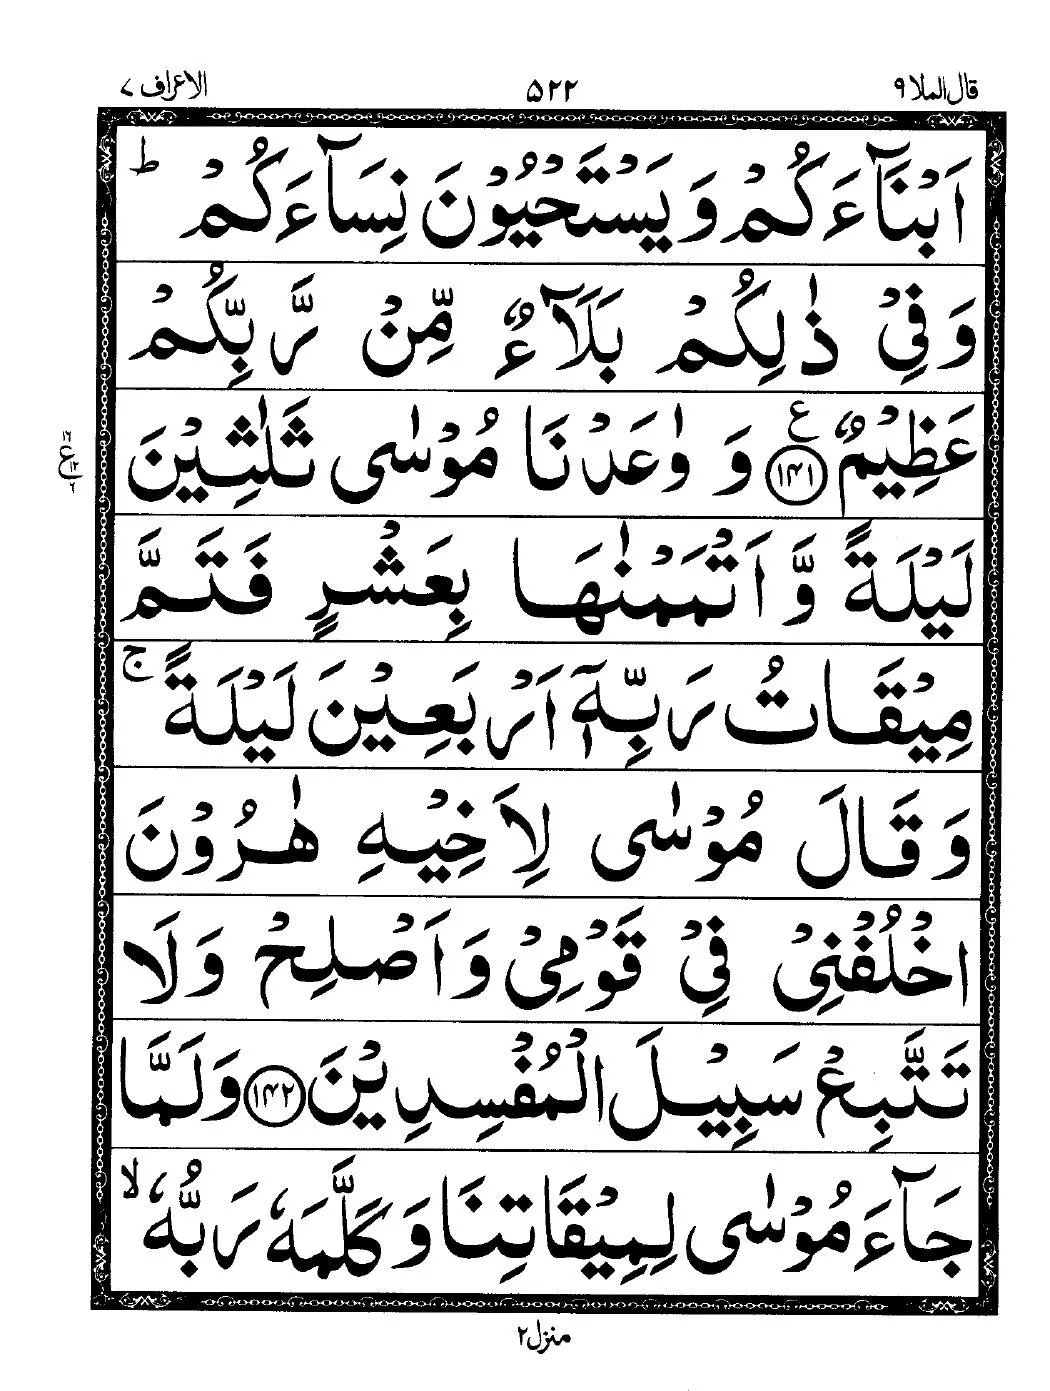 قال الملا ٩ ۵۲۲ الاعراف ٧
اَبْنَآءَكُمْ وَ يَسْتَحْيُوْنَ نِسَآءَكُمْ ؕ
وَ فِيْ ذٰلِكُمْ بَلَآءٌ مِّنْ رَّبِّكُمْ
عَظِيْمٌ ﴿۱۴۱﴾ ع وَ وٰعَدْنَا مُوْسٰى ثَلٰثِيْنَ
١٦ ع ١٢ ٦
لَيْلَةً وَّ اَتْمَمْنٰهَا بِعَشْرٍ فَتَمَّ
مِيْقَاتُ رَبِّهٖۤ اَرْبَعِيْنَ لَيْلَةً ۚ
وَ قَالَ مُوْسٰى لِاَخِيْهِ هٰرُوْنَ
اخْلُفْنِيْ فِيْ قَوْمِيْ وَ اَصْلِحْ وَ لَا
تَتَّبِعْ سَبِيْلَ الْمُفْسِدِيْنَ ﴿۱۴۲﴾ وَ لَمَّا
جَآءَ مُوْسٰى لِمِيْقَاتِنَا وَ كَلَّمَهٗ رَبُّهٗ ۙ
منزل ٢